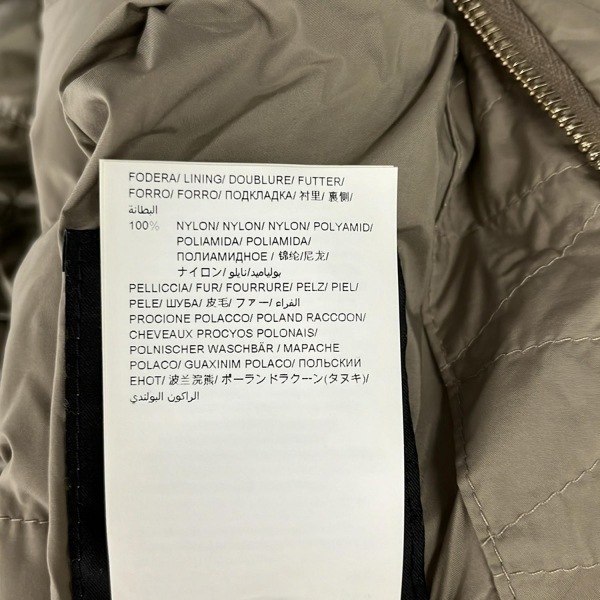 FODERA/ LINING/ DOUBLURE/ FUTTER/
FORRO/ FORRO/ ПОДКЛАДКА/ 衬里/ 裏側/
البطانة
100% NYLON/ NYLON/ NYLON/ POLYAMID/
POLIAMIDA/ POLIAMIDA/
ПОЛИАМИДНОЕ / 锦纶/尼龙/
ナイロン/ بولياميد/نايلو
PELLICCIA/ FUR/ FOURRURE/ PELZ/ PIEL/
PELE/ ШУБА/ 皮毛/ ファー/ الفراء
PROCIONE POLACCO/ POLAND RACCOON/
CHEVEAUX PROCYOS POLONAIS/
POLNISCHER WASCHBÄR / MAPACHE
POLACO/ GUAXINIM POLACO/ ПОЛЬСКИЙ
ЕНОТ/ 波兰浣熊/ ポーランドラクーン(タヌキ)/
الراكون البولندي